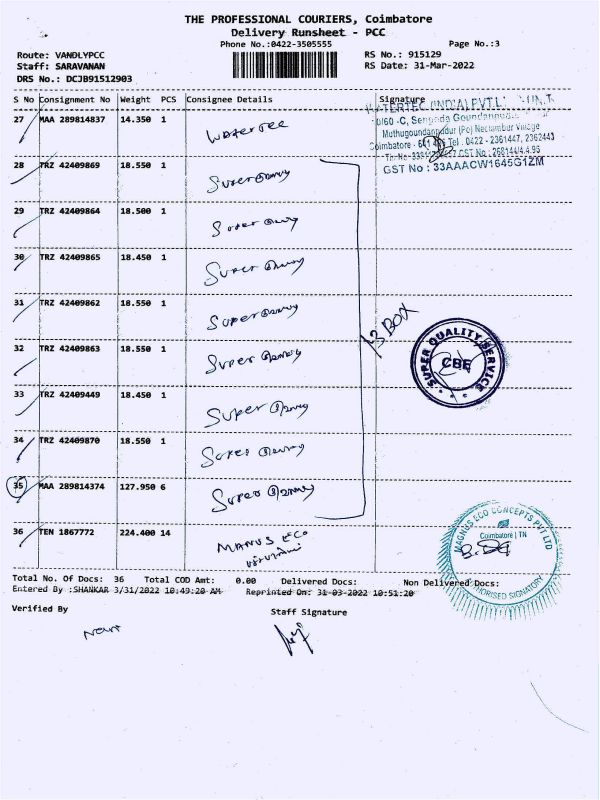 THE PROFESSIONAL COURIERS, Coimbatore
Delivery Runsheet - PCC
Phone No.:0422-3505555
Page No.:3
Route: VANDLYPCC
Staff: SARAVANAN
DRS No.: DCJB91512903
RS No.: 915129
RS Date: 31-Mar-2022
S No Consignment No Weight PCS Consignee Details Signature
27 MAA 289814837 14.350 1
WATERTEC (INDIA) PVT.
Muthugoundanpudur (Po) Neelambur Village
Coimbatore - Tel : 0422 - 2361447, 2362443
GST No : 33AAACW1645G1ZM
28 TRZ 42409869 18.550 1 Super
29 TRZ 42409864 18.500 1 Super
30 TRZ 42409865 18.450 1 Super
31 TRZ 42409862 18.550 1 Super
13 BOX
32 TRZ 42409863 18.550 1 Super
SUPER QUALITY SERVICE
CBE
33 TRZ 42409449 18.450 1 Super
34 TRZ 42409870 18.550 1 Super
35 MAA 289814374 127.950 6 Super
36 TEN 1867772 224.400 14 Eco
MAGNUS ECO CONCEPTS PVT LTD
Coimbatore | TN
AUTHORISED SIGNATORY
Total No. Of Docs: 36 Total COD Amt: 0.00 Delivered Docs: Non Delivered Docs:
Entered By :SHANKAR 3/31/2022 10:49:20 AM Reprinted On: 31-03-2022 10:51:20
Verified By
Staff Signature